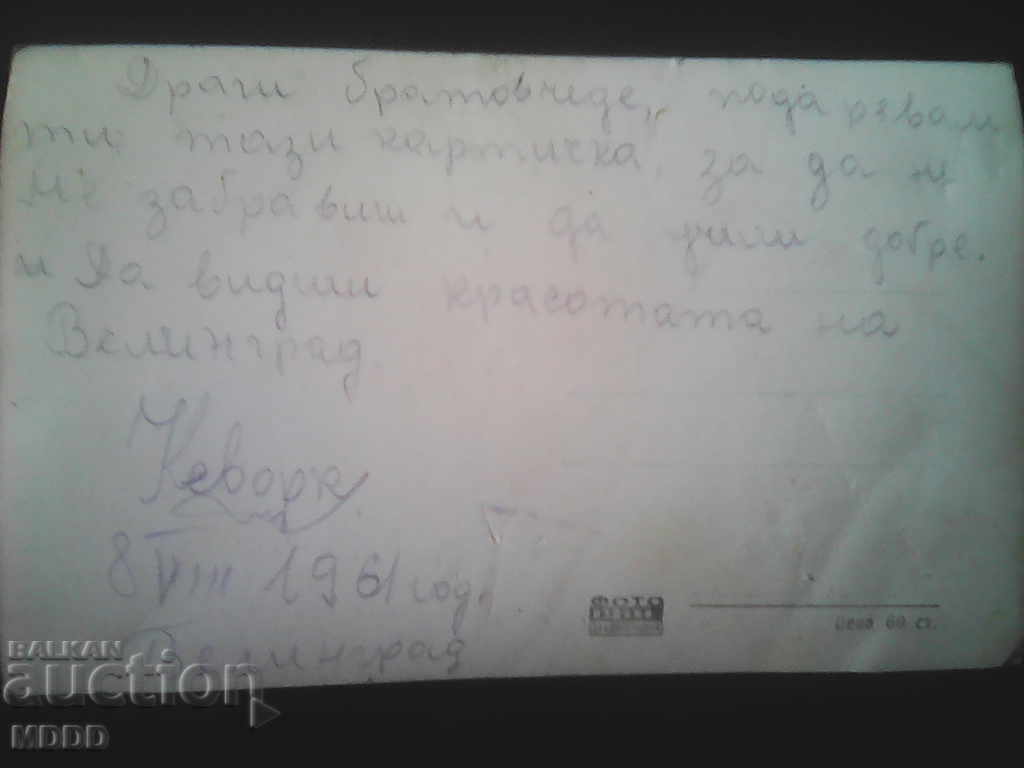 Драги братовчеде, подарявам
ти тази картичка, за да м
не забравиш и да учиш добре.
и Да видиш красотата на
Велинград.
Кеворк
8 VIII 1961 год.
Велинград
ФОТО
Цена 60 ст.
BALKAN
auction
MDDD